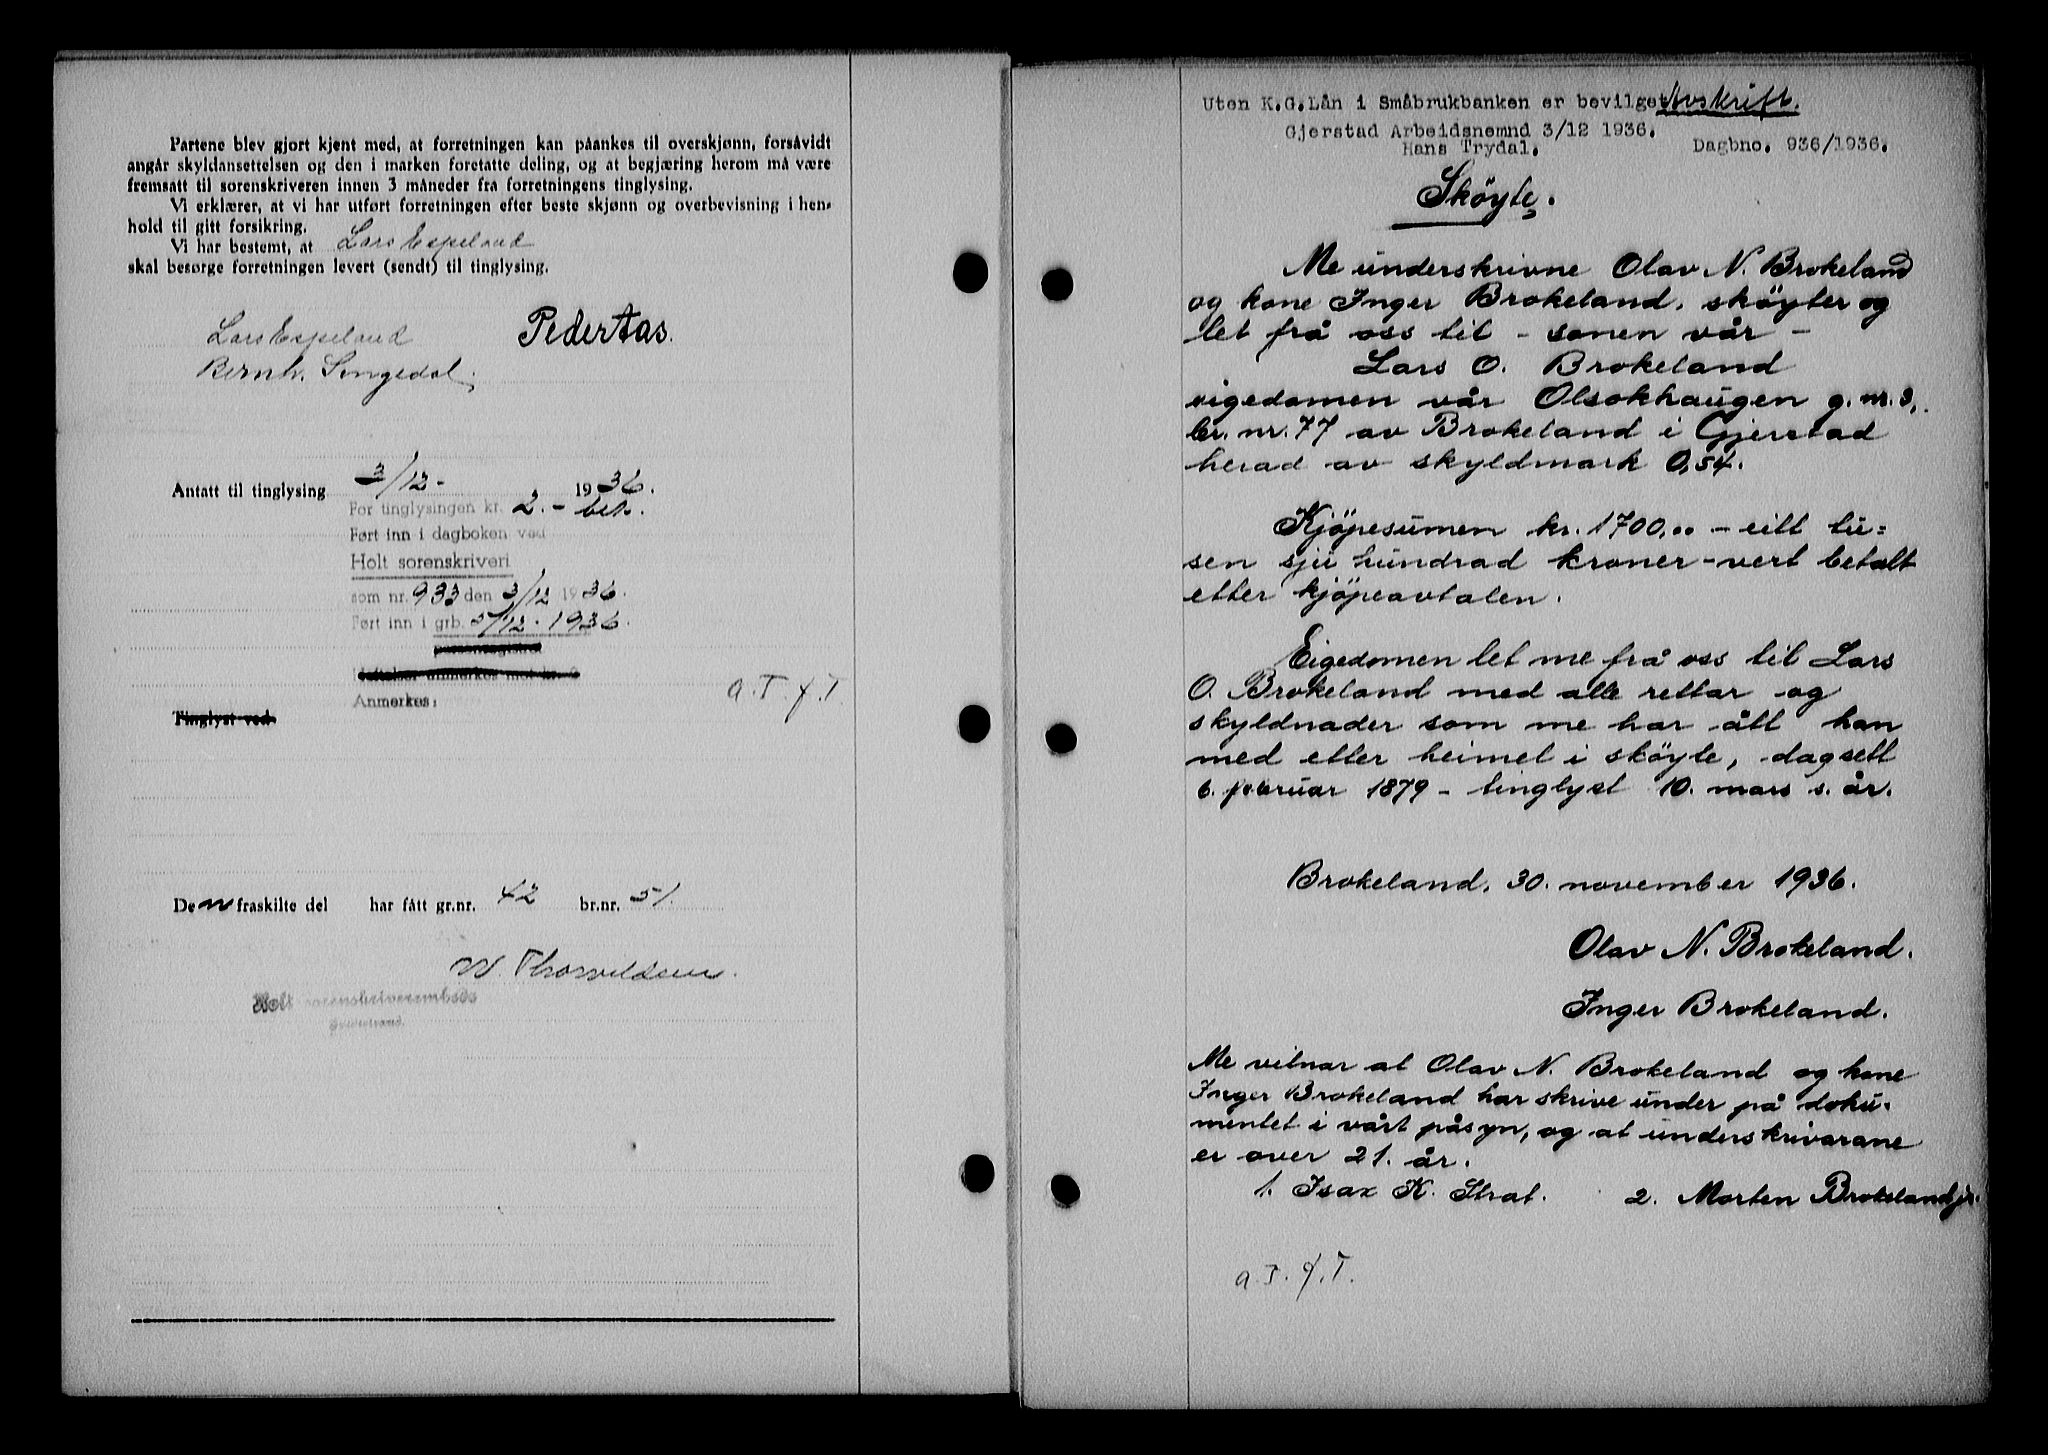 Partene blev gjort kjent med, at forretningen kan påankes til overskjønn, forsåvidt
angår skyldansettelsen og den i marken foretatte deling, og at begjæring herom må være
fremsatt til sorenskriveren innen 3 måneder fra forretningens tinglysing.
Vi erklærer, at vi har utført forretningen efter beste skjønn og overbevisning i hen-
hold til gitt forsikring.
Vi har bestemt, at Lars Espeland
skal besørge forretningen levert (sendt) til tinglysing.
Lars Espeland Peder Aas.
Bernh. Lingedal.
Antatt til tinglysing 3/12- 1936.
For tinglysingen kr. 2.- bet.
Ført inn i dagboken ved
Holt sorenskriveri
som nr. 933 den 3/12 1936.
Ført inn i grb. 5/12 - 1936.
Anmerkes:
a. T. f. T
Tinglyst ved
Den fraskilte del har fått gr.nr. 42 br.nr. 51.
W. Thorvildsen.
Holt sorenskriverembede
Uten K.G.Lån i Småbrukbanken er bevilget Avskrift.
Gjerstad Arbeidsnemnd 3/12 1936.
Hans Trydal. Dagbno. 936/1936.
Sköyte.
Me underskrivne Olav N. Brokeland
og kone Inger Brokeland, sköyter og
let frå oss til - sonen vår -
Lars O. Brokeland
eigedomen vår Olsokhaugen g. nr. 3,
br. nr. 77 av Brokeland i Gjerstad
herad av skyldmark 0,54.
Kjöpesumen kr. 1700,00 - eitt tu=
sen sju hundrad kroner - vert betalt
etter kjöpeavtalen.
Eigedomen let me frå oss til Lars
O. Brokeland med alle rettar og
skyldnader som me har ått han
med etter heimel i sköyte, dagsett
6. februar 1879 - tinglyst 10. mars s. år.
Brokeland, 30. november 1936.
Olav N. Brokeland.
Inger Brokeland.
Me vitnar at Olav N. Brokeland og kone
Inger Brokeland har skrive under på doku-
mentet i vårt påsyn, og at underskrivarane
er over 21. år.
1. Isax K. Strat. 2. Morten Brokeland jr.
a. T. f. T.